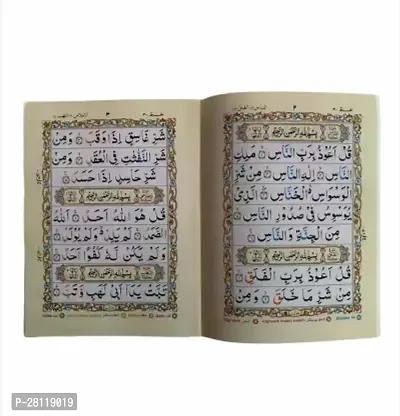 عم ٣٠
٢
بِسْمِ اللّٰهِ الرَّحْمٰنِ الرَّحِيْمِ
قُلْ اَعُوْذُ بِرَبِّ النَّاسِ مَلِكِ
النَّاسِ اِلٰهِ النَّاسِ مِنْ شَرِّ
الْوَسْوَاسِ الْخَنَّاسِ الَّذِيْ
يُوَسْوِسُ فِيْ صُدُوْرِ النَّاسِ
مِنَ الْجِنَّةِ وَالنَّاسِ
بِسْمِ اللّٰهِ الرَّحْمٰنِ الرَّحِيْمِ
قُلْ اَعُوْذُ بِرَبِّ الْفَلَقِ
مِنْ شَرِّ مَا خَلَقَ وَمِنْ
عم ٣٠
٣
شَرِّ غَاسِقٍ اِذَا وَقَبَ وَمِنْ
شَرِّ النَّفّٰثٰتِ فِي الْعُقَدِ وَمِنْ
شَرِّ حَاسِدٍ اِذَا حَسَدَ
بِسْمِ اللّٰهِ الرَّحْمٰنِ الرَّحِيْمِ
قُلْ هُوَ اللّٰهُ اَحَدٌ اَللّٰهُ
الصَّمَدُ لَمْ يَلِدْ وَلَمْ يُوْلَدْ
وَلَمْ يَكُنْ لَّهٗ كُفُوًا اَحَدٌ
بِسْمِ اللّٰهِ الرَّحْمٰنِ الرَّحِيْمِ
تَبَّتْ يَدَا اَبِيْ لَهَبٍ وَّتَبَّ
P-28119019